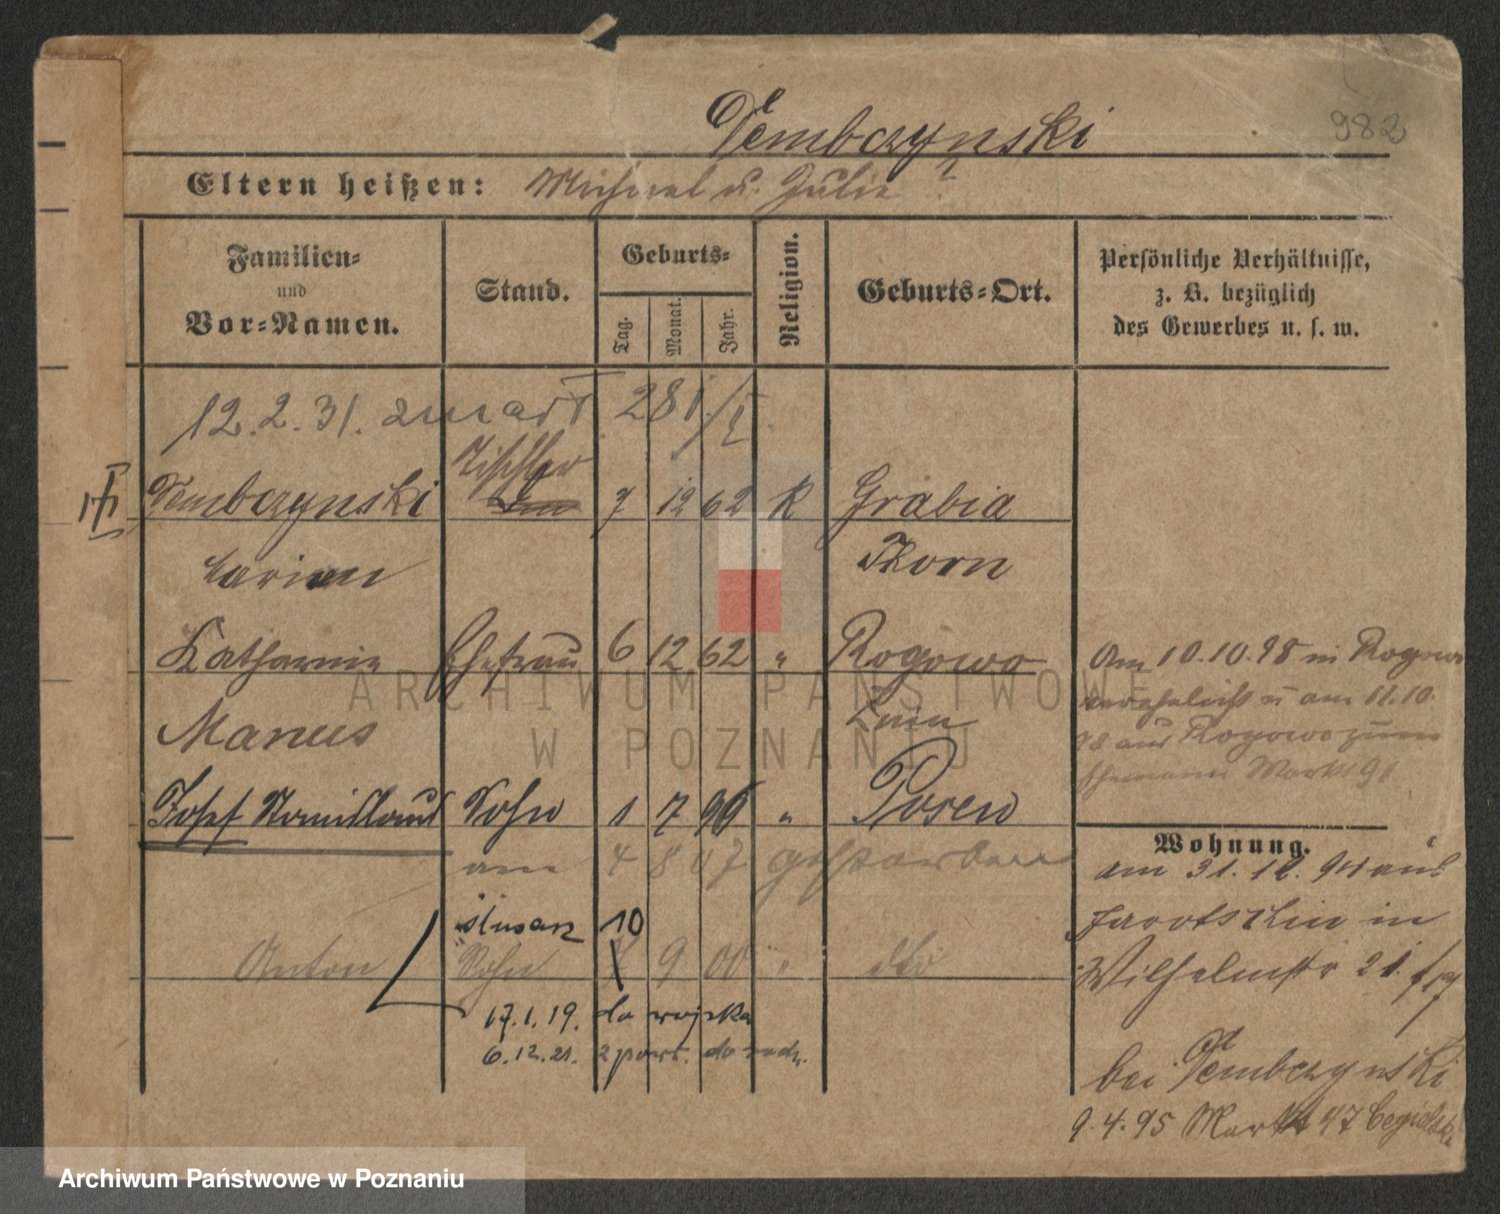 982
Tembczynski
Eltern heißen: Michael u. Julie ?
Familien= und Vor=Namen.
Stand.
Geburts=
Tag.
Monat.
Jahr.
Religion.
Geburts=Ort.
Persönliche Verhältnisse,
z. B. bezüglich
des Gewerbes u. s. w.
12.2.31. zmarł 281/I.
Tischler
Tembczynski 7 12 62 K Grabia
Thorn
Katharina Ehefrau 6 12 62 " Rogowo
Manus Znin
Am 10.10.98 in Rogowo
verehelicht u am 11.10.
98 aus Rogowo zum
Ehemann Markt 91
Josef Stanislaus Sohn 1 7 96 " Posen
am 4 8 07 gestorben
ślusarz 10
Anton Sohn 9 00 " dto
17.1.19. do wojska
6.12.21. z pow. do rodz.
Wohnung.
am 31.12.94 aus
Jarotschin in
Wilhelmstr 21
bei Tembczynski
9.4.95 Markt 47
ARCHIWUM PAŃSTWOWE
W POZNANIU
Archiwum Państwowe w Poznaniu